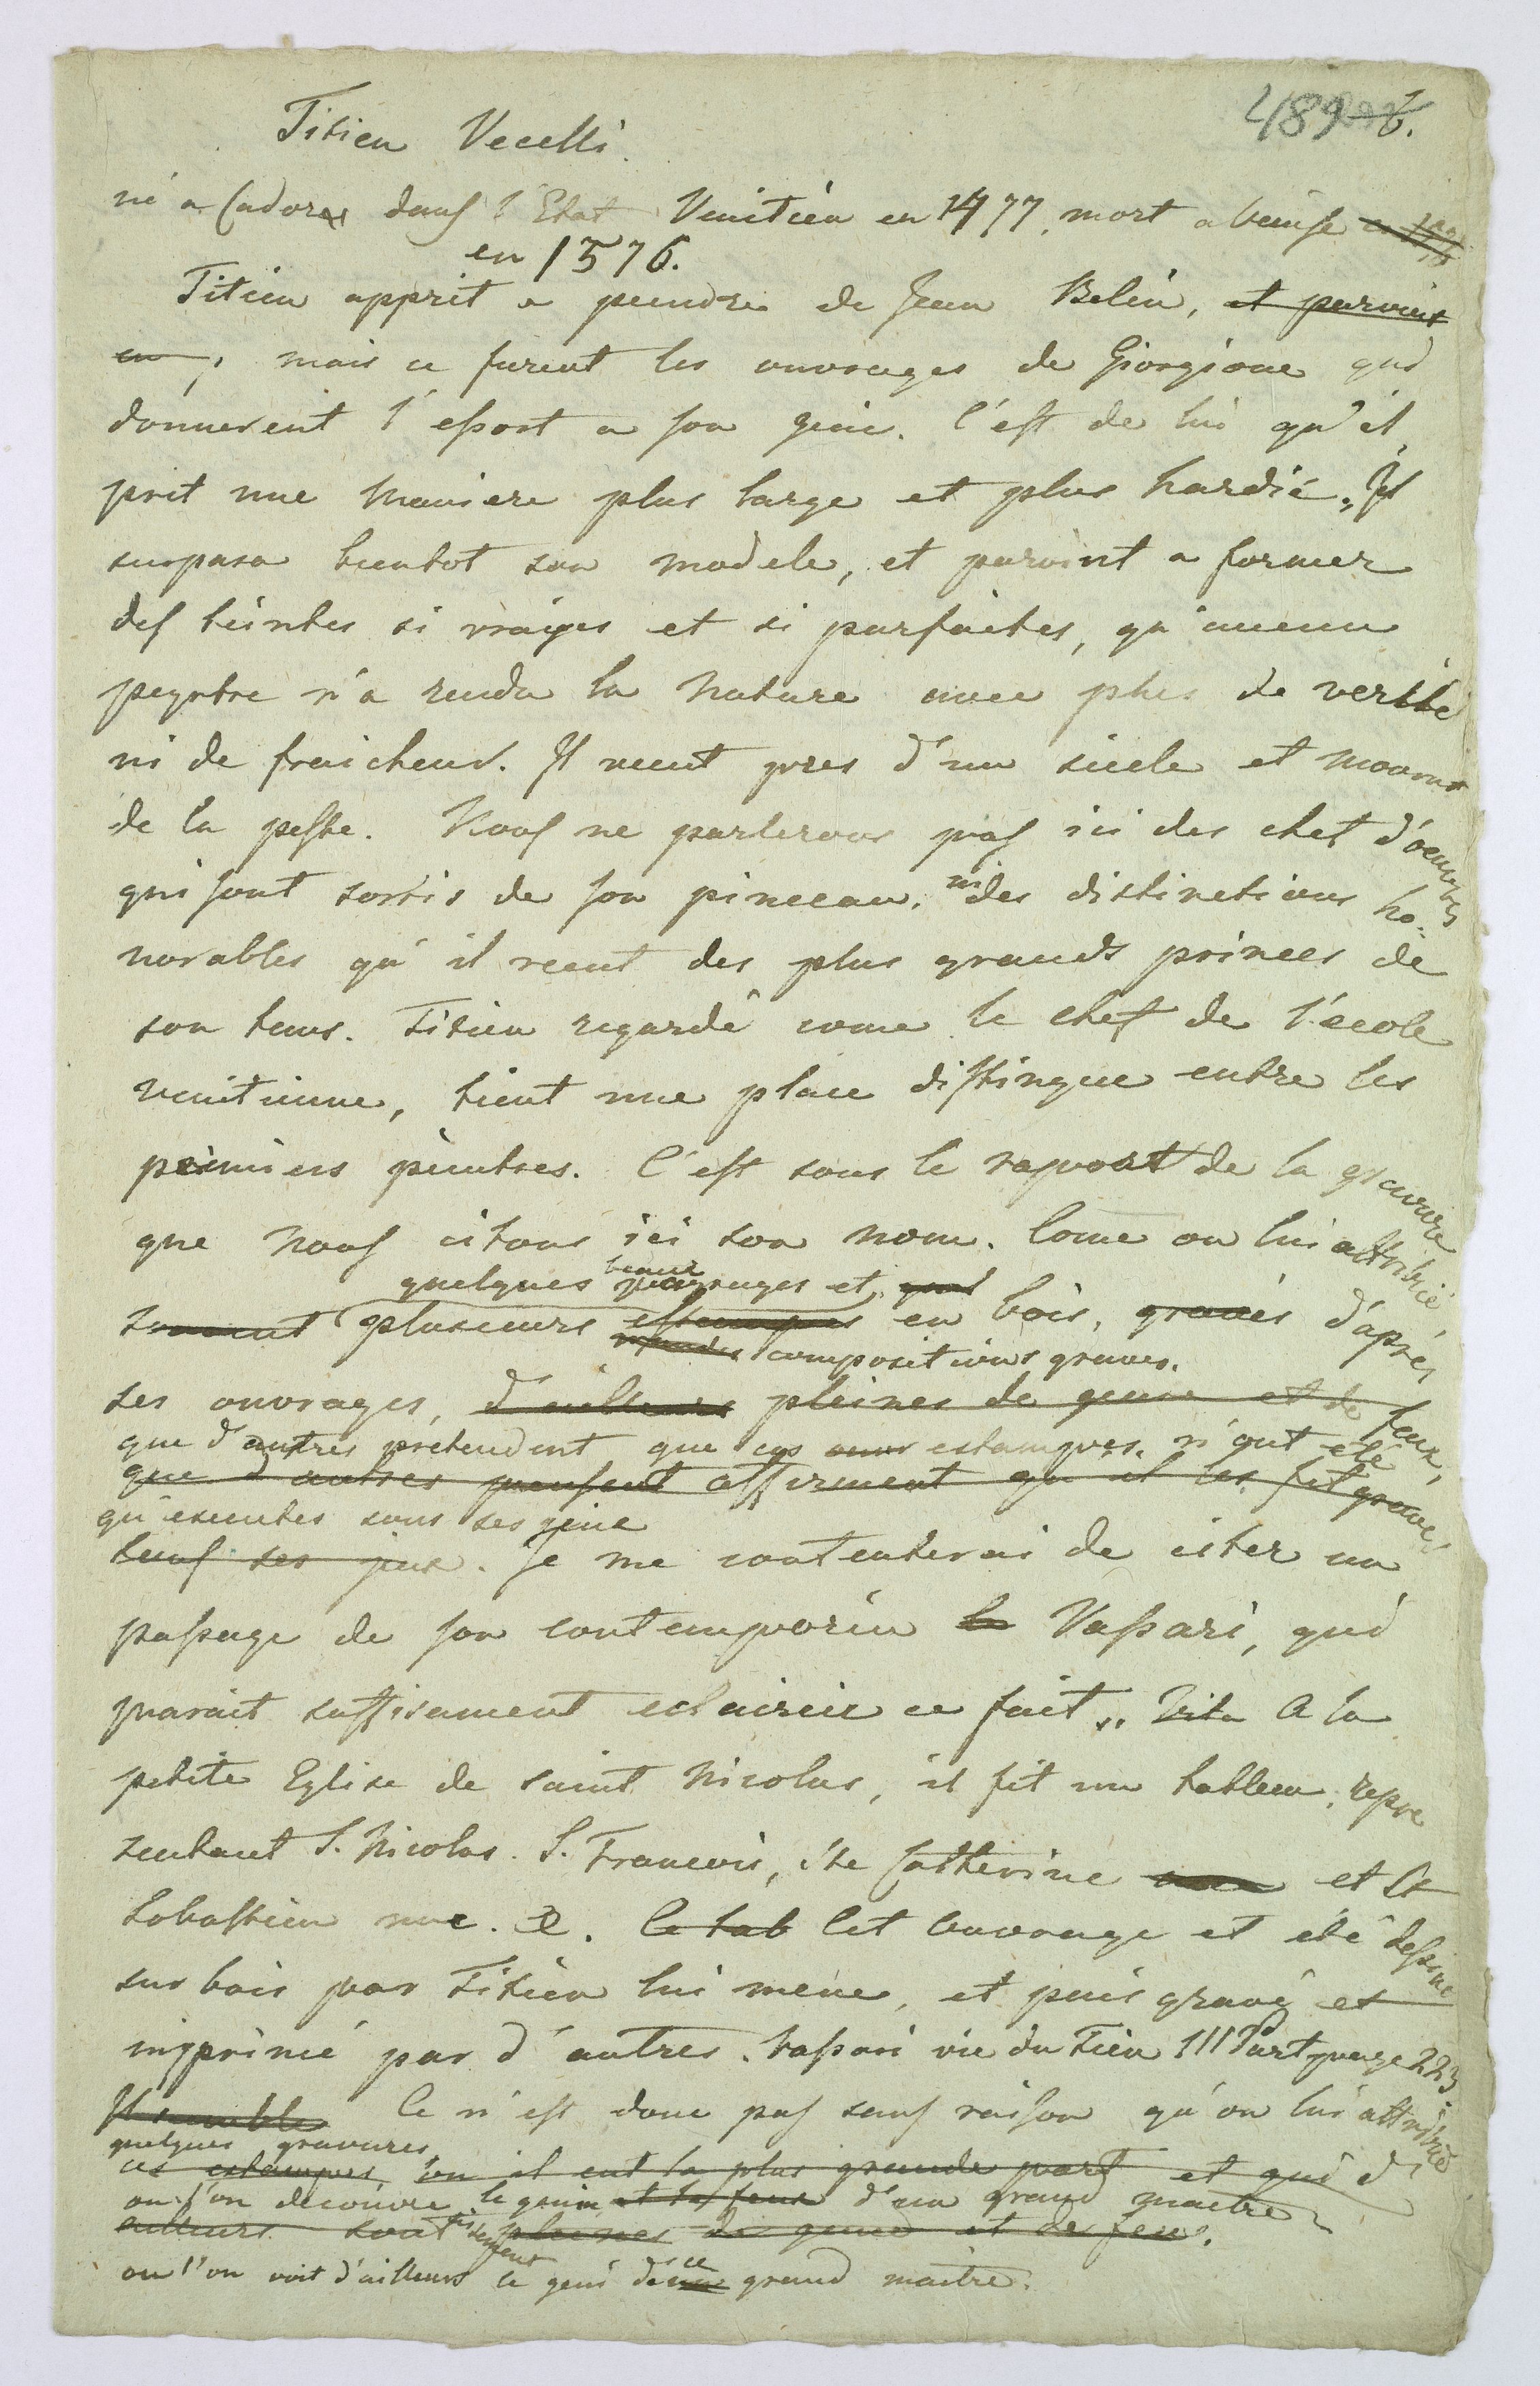 489
Titien Vecelli.
né a Cadore dans l'Etat Venitien en 1477, mort a Venise
en 1576.
Titien apprit a peindre de Jean Belin, et parvint
en, mais ce furent les ouvrages de Giorgione qui
donnerent l'essort a son genie. C'est de lui qu'il
prit une maniere plus large et plus hardie, Il
surpasa bientot son modele, et parvint a former
des teintes si vraiyes et si parfaites, qu'aucun
peyntre n'a rendu la nature avec plus de verité
ni de fraicheur. Il vecut pres d'un siecle et mourut
de la peste. Nous ne parlerons pas ici des chef d'oeuvres
qui sont sortis de son pinceau, ni des distinctions ho-
norables qu'il recut des plus grands princes de
son tems. Titien regardé come le chef de l'ecole
venitienne, tient une place distingue entre les
premiers peintres. C'est sous le raport de la gravure
que nous citons ici son nom. Come on lui attribue
quelques beaux paysages et
souvent plusieurs estampes en bois, gravés d'après
grandes compositions graves.
ses ouvrages, d'ailleurs pleines de genie et de feux,
que d'autres pretendent que ces estampes n'ont été
que d'autres pensent affirment qu'il les fit graver
qu'executes sous ses yeux
sous ses yeux. Je me contenterai de citer un
passage de son contemporin le Vassari, qui
parait suffisament eclaircir ce fait „ Vita A la
petite Eglise de saint Nicolas, il fit un tableau, repre
sentant S. Nicolas. S. Francois, ste Catherine et St
Sebastien nue. Le tab Cet ouvrage et été dessiné
sur bois par Titien lui meme, et puis gravé et
imprimé par d'autres. Vassari vie du Tien III Part page 223.
Il semble Ce n'est donc pas sans raison qu'on lui attribue
quelques gravures,
ces estampes, ou il eut la plus grande part et qui d'
ou l'on decouvre le genie et le feux d'un grand maitre
ailleurs sont pleines de genie et de feu.
ou l'on voit d'ailleurs le geni de ce grand maitre.